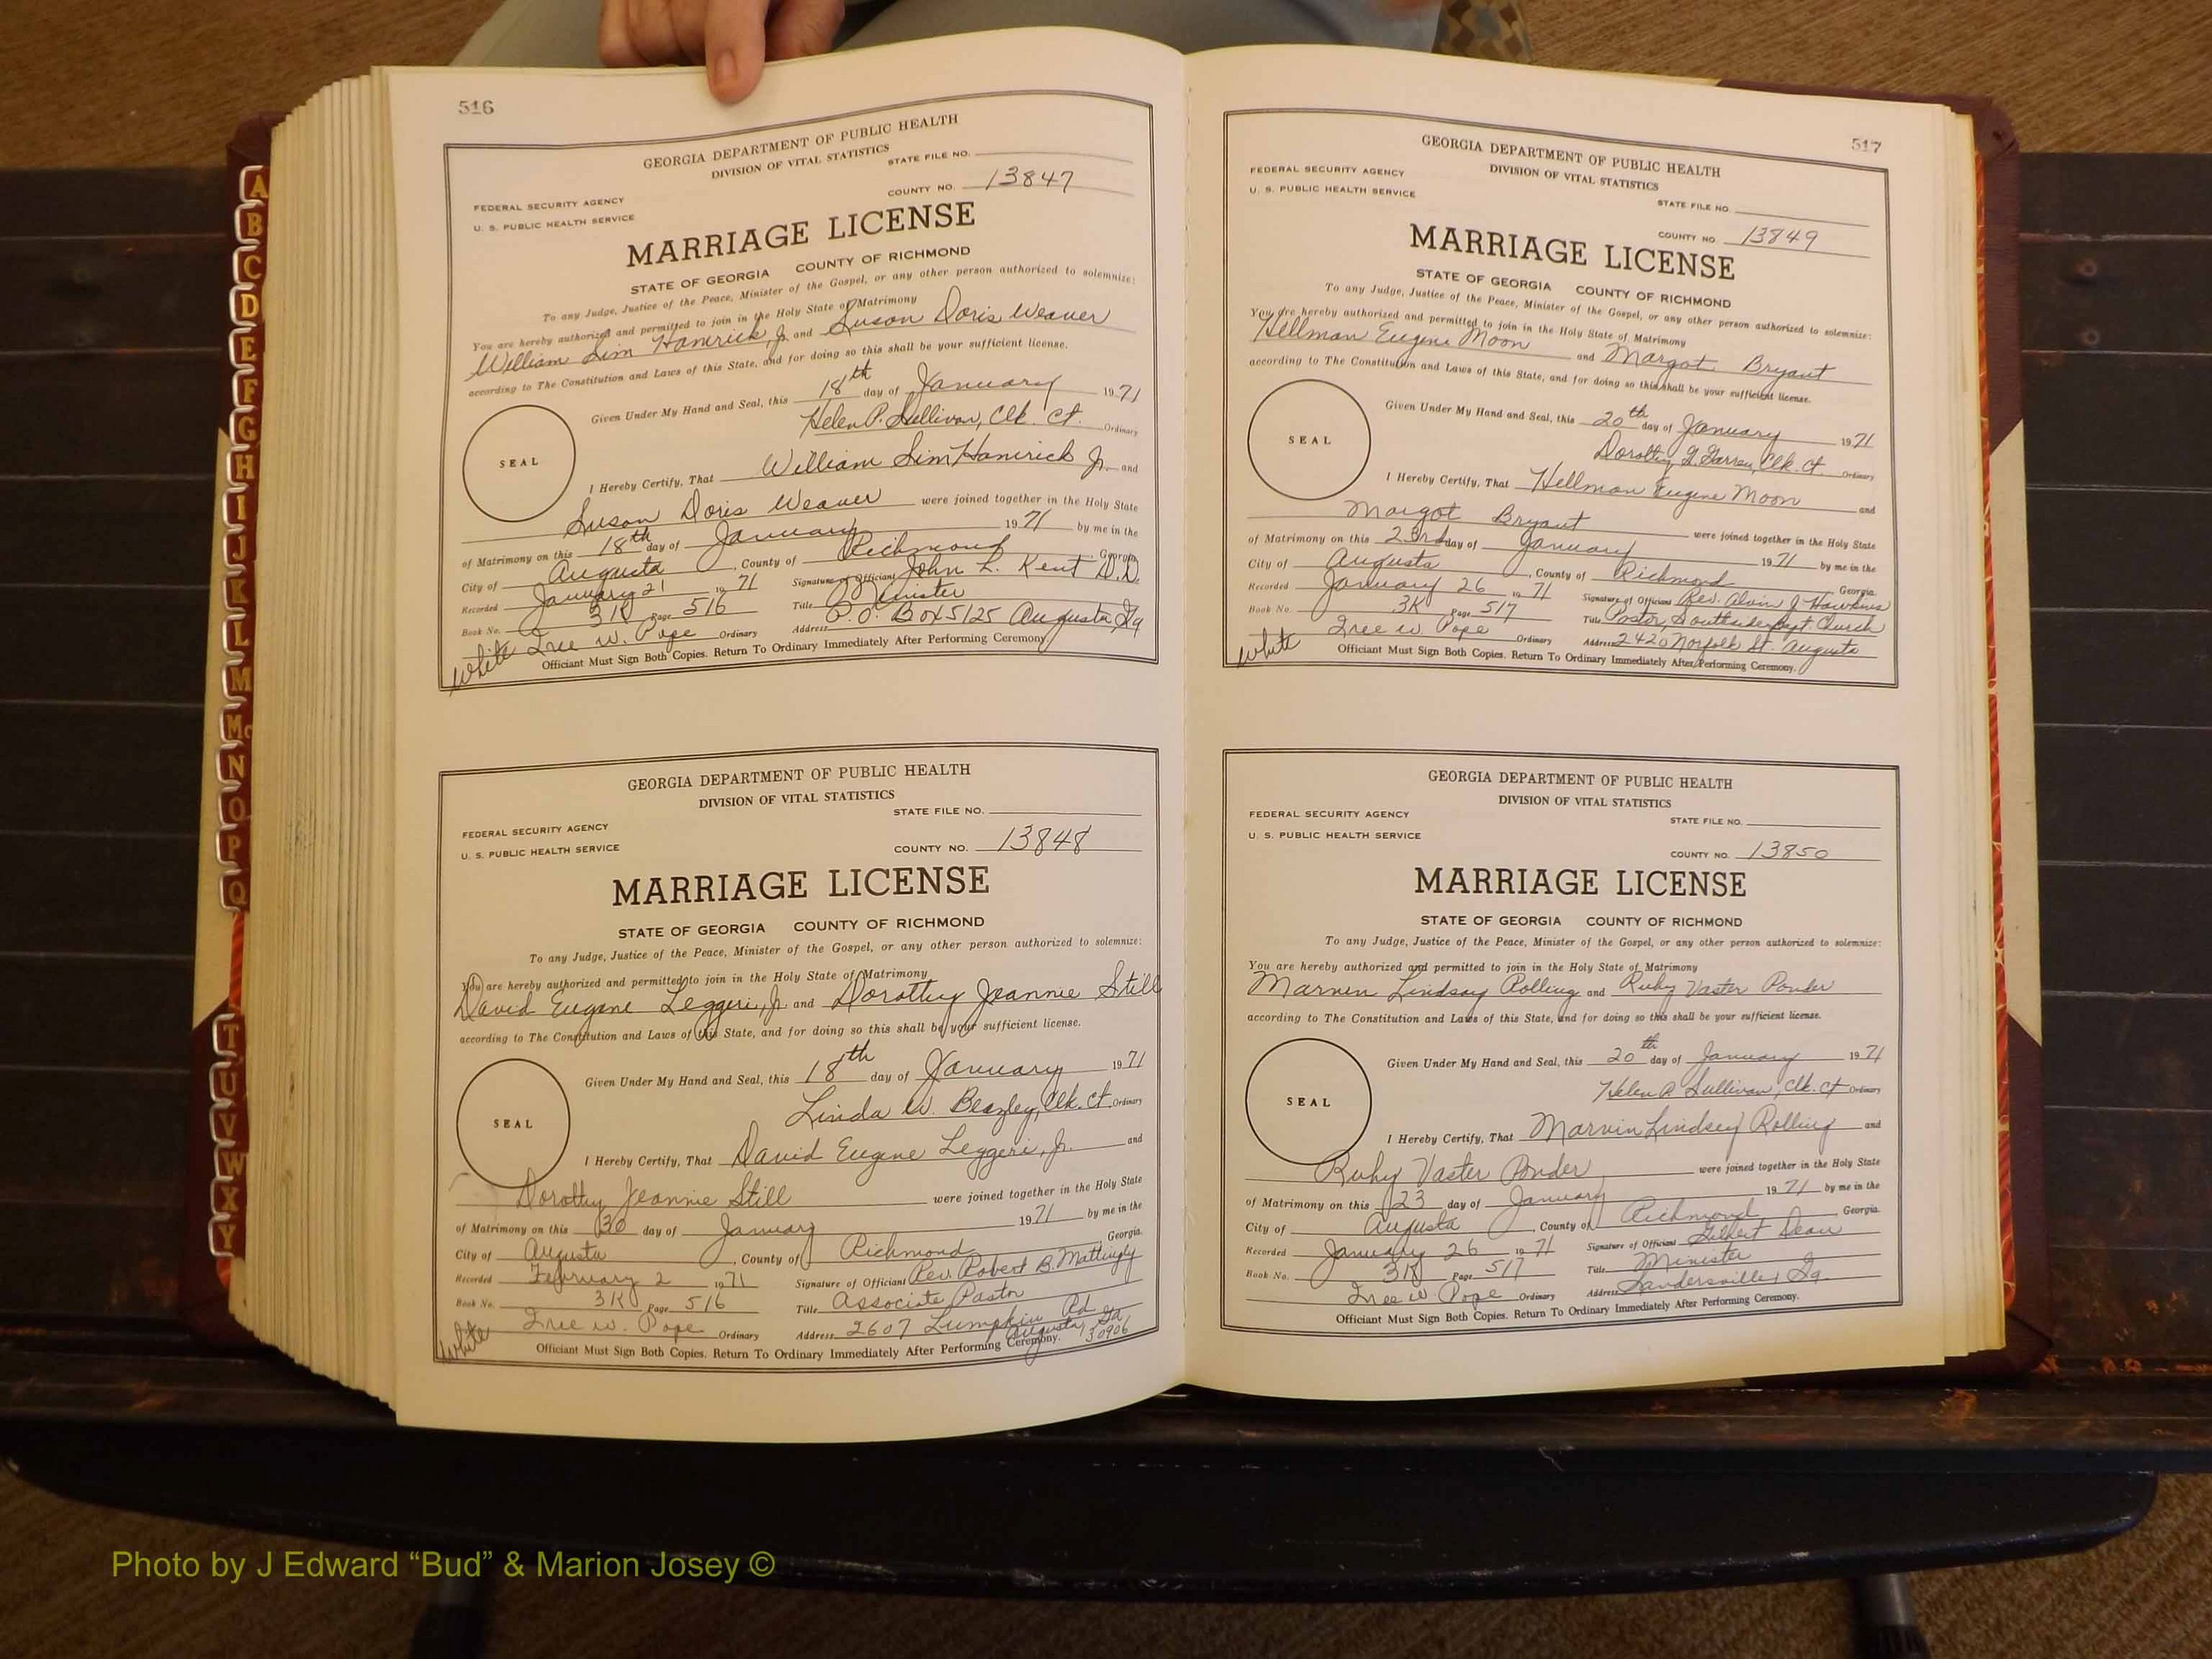 516
GEORGIA DEPARTMENT OF PUBLIC HEALTH
DIVISION OF VITAL STATISTICS
STATE FILE NO.
COUNTY NO. 13847
FEDERAL SECURITY AGENCY
U. S. PUBLIC HEALTH SERVICE
MARRIAGE LICENSE
STATE OF GEORGIA COUNTY OF RICHMOND
To any Judge, Justice of the Peace, Minister of the Gospel, or any other person authorized to solemnize:
You are hereby authorized and permitted to join in the Holy State of Matrimony
William Sim Hamrick, Jr. and Susan Doris Weaver
according to The Constitution and Laws of this State, and for doing so this shall be your sufficient license.
Given Under My Hand and Seal, this 18th day of January 1971
Helen P. Sullivan, Clk. Ct. Ordinary
SEAL
I Hereby Certify, That William Sim Hamrick Jr. and
Susan Doris Weaver were joined together in the Holy State
of Matrimony on this 18th day of January 1971 by me in the
City of Augusta, County of Richmond, Georgia
Recorded January 21 1971 Signature of Officiant John L. Kent D.D.
Book No. 3K Page 516 Title Minister
Tree W. Pope Ordinary Address P.O. Box 5125 Augusta, Ga
White Officiant Must Sign Both Copies. Return To Ordinary Immediately After Performing Ceremony.
GEORGIA DEPARTMENT OF PUBLIC HEALTH
DIVISION OF VITAL STATISTICS
STATE FILE NO.
FEDERAL SECURITY AGENCY
U. S. PUBLIC HEALTH SERVICE
COUNTY NO. 13848
MARRIAGE LICENSE
STATE OF GEORGIA COUNTY OF RICHMOND
To any Judge, Justice of the Peace, Minister of the Gospel, or any other person authorized to solemnize:
You are hereby authorized and permitted to join in the Holy State of Matrimony
David Eugene Leggeri, Jr. and Dorothy Jeannie Still
according to The Constitution and Laws of this State, and for doing so this shall be your sufficient license.
Given Under My Hand and Seal, this 18th day of January 1971
Linda W. Beazley, Clk. Ct. Ordinary
SEAL
I Hereby Certify, That David Eugene Leggeri, Jr. and
Dorothy Jeannie Still were joined together in the Holy State
of Matrimony on this 30 day of January 1971 by me in the
City of Augusta, County of Richmond Georgia.
Recorded February 2 1971 Signature of Officiant Rev. Robert B. Mattingly
Book No. 3K Page 516 Title Associate Pastor
Tree W. Pope Ordinary Address 2607 Lumpkin Rd
Augusta, Ga 30906
White Officiant Must Sign Both Copies. Return To Ordinary Immediately After Performing Ceremony.
517
GEORGIA DEPARTMENT OF PUBLIC HEALTH
DIVISION OF VITAL STATISTICS
FEDERAL SECURITY AGENCY
U. S. PUBLIC HEALTH SERVICE
STATE FILE NO.
COUNTY NO. 13849
MARRIAGE LICENSE
STATE OF GEORGIA COUNTY OF RICHMOND
To any Judge, Justice of the Peace, Minister of the Gospel, or any other person authorized to solemnize:
You are hereby authorized and permitted to join in the Holy State of Matrimony
Hellman Eugene Moon and Margot Bryant
according to The Constitution and Laws of this State, and for doing so this shall be your sufficient license.
Given Under My Hand and Seal, this 20th day of January 1971
Dorothy Clk. Ct. Ordinary
SEAL
I Hereby Certify, That Hellman Eugene Moon and
Margot Bryant were joined together in the Holy State
of Matrimony on this 23rd day of January 1971 by me in the
City of Augusta, County of Richmond Georgia.
Recorded January 26 1971 Signature of Officiant Rev. Alvin J. Hawkins
Book No. 3K Page 517 Title Pastor, Southside Bapt. Church
Tree W. Pope Ordinary Address 2420 Norfolk St. Augusta
White Officiant Must Sign Both Copies. Return To Ordinary Immediately After Performing Ceremony.
GEORGIA DEPARTMENT OF PUBLIC HEALTH
DIVISION OF VITAL STATISTICS
FEDERAL SECURITY AGENCY
U. S. PUBLIC HEALTH SERVICE
STATE FILE NO.
COUNTY NO. 13850
MARRIAGE LICENSE
STATE OF GEORGIA COUNTY OF RICHMOND
To any Judge, Justice of the Peace, Minister of the Gospel, or any other person authorized to solemnize:
You are hereby authorized and permitted to join in the Holy State of Matrimony
Marvin Lindsay Rolling and Ruby Vaster Ponder
according to The Constitution and Laws of this State, and for doing so this shall be your sufficient license.
Given Under My Hand and Seal, this 20th day of January 1971
Helen P. Sullivan, Clk. Ct Ordinary
SEAL
I Hereby Certify, That Marvin Lindsey Rolling and
Ruby Vaster Ponder were joined together in the Holy State
of Matrimony on this 23 day of January 1971 by me in the
City of Augusta, County of Richmond, Georgia.
Recorded January 26 1971 Signature of Officiant Gilbert Dean
Book No. 3K Page 517 Title Minister
Tree W. Pope Ordinary Address Sandersville, Ga.
Officiant Must Sign Both Copies. Return To Ordinary Immediately After Performing Ceremony.
A
B
C
D
E
F
G
H
I
J
K
L
M
Mc
N
O
P
Q
T
U
V
W
X
Y
Photo by J Edward “Bud” & Marion Josey ©